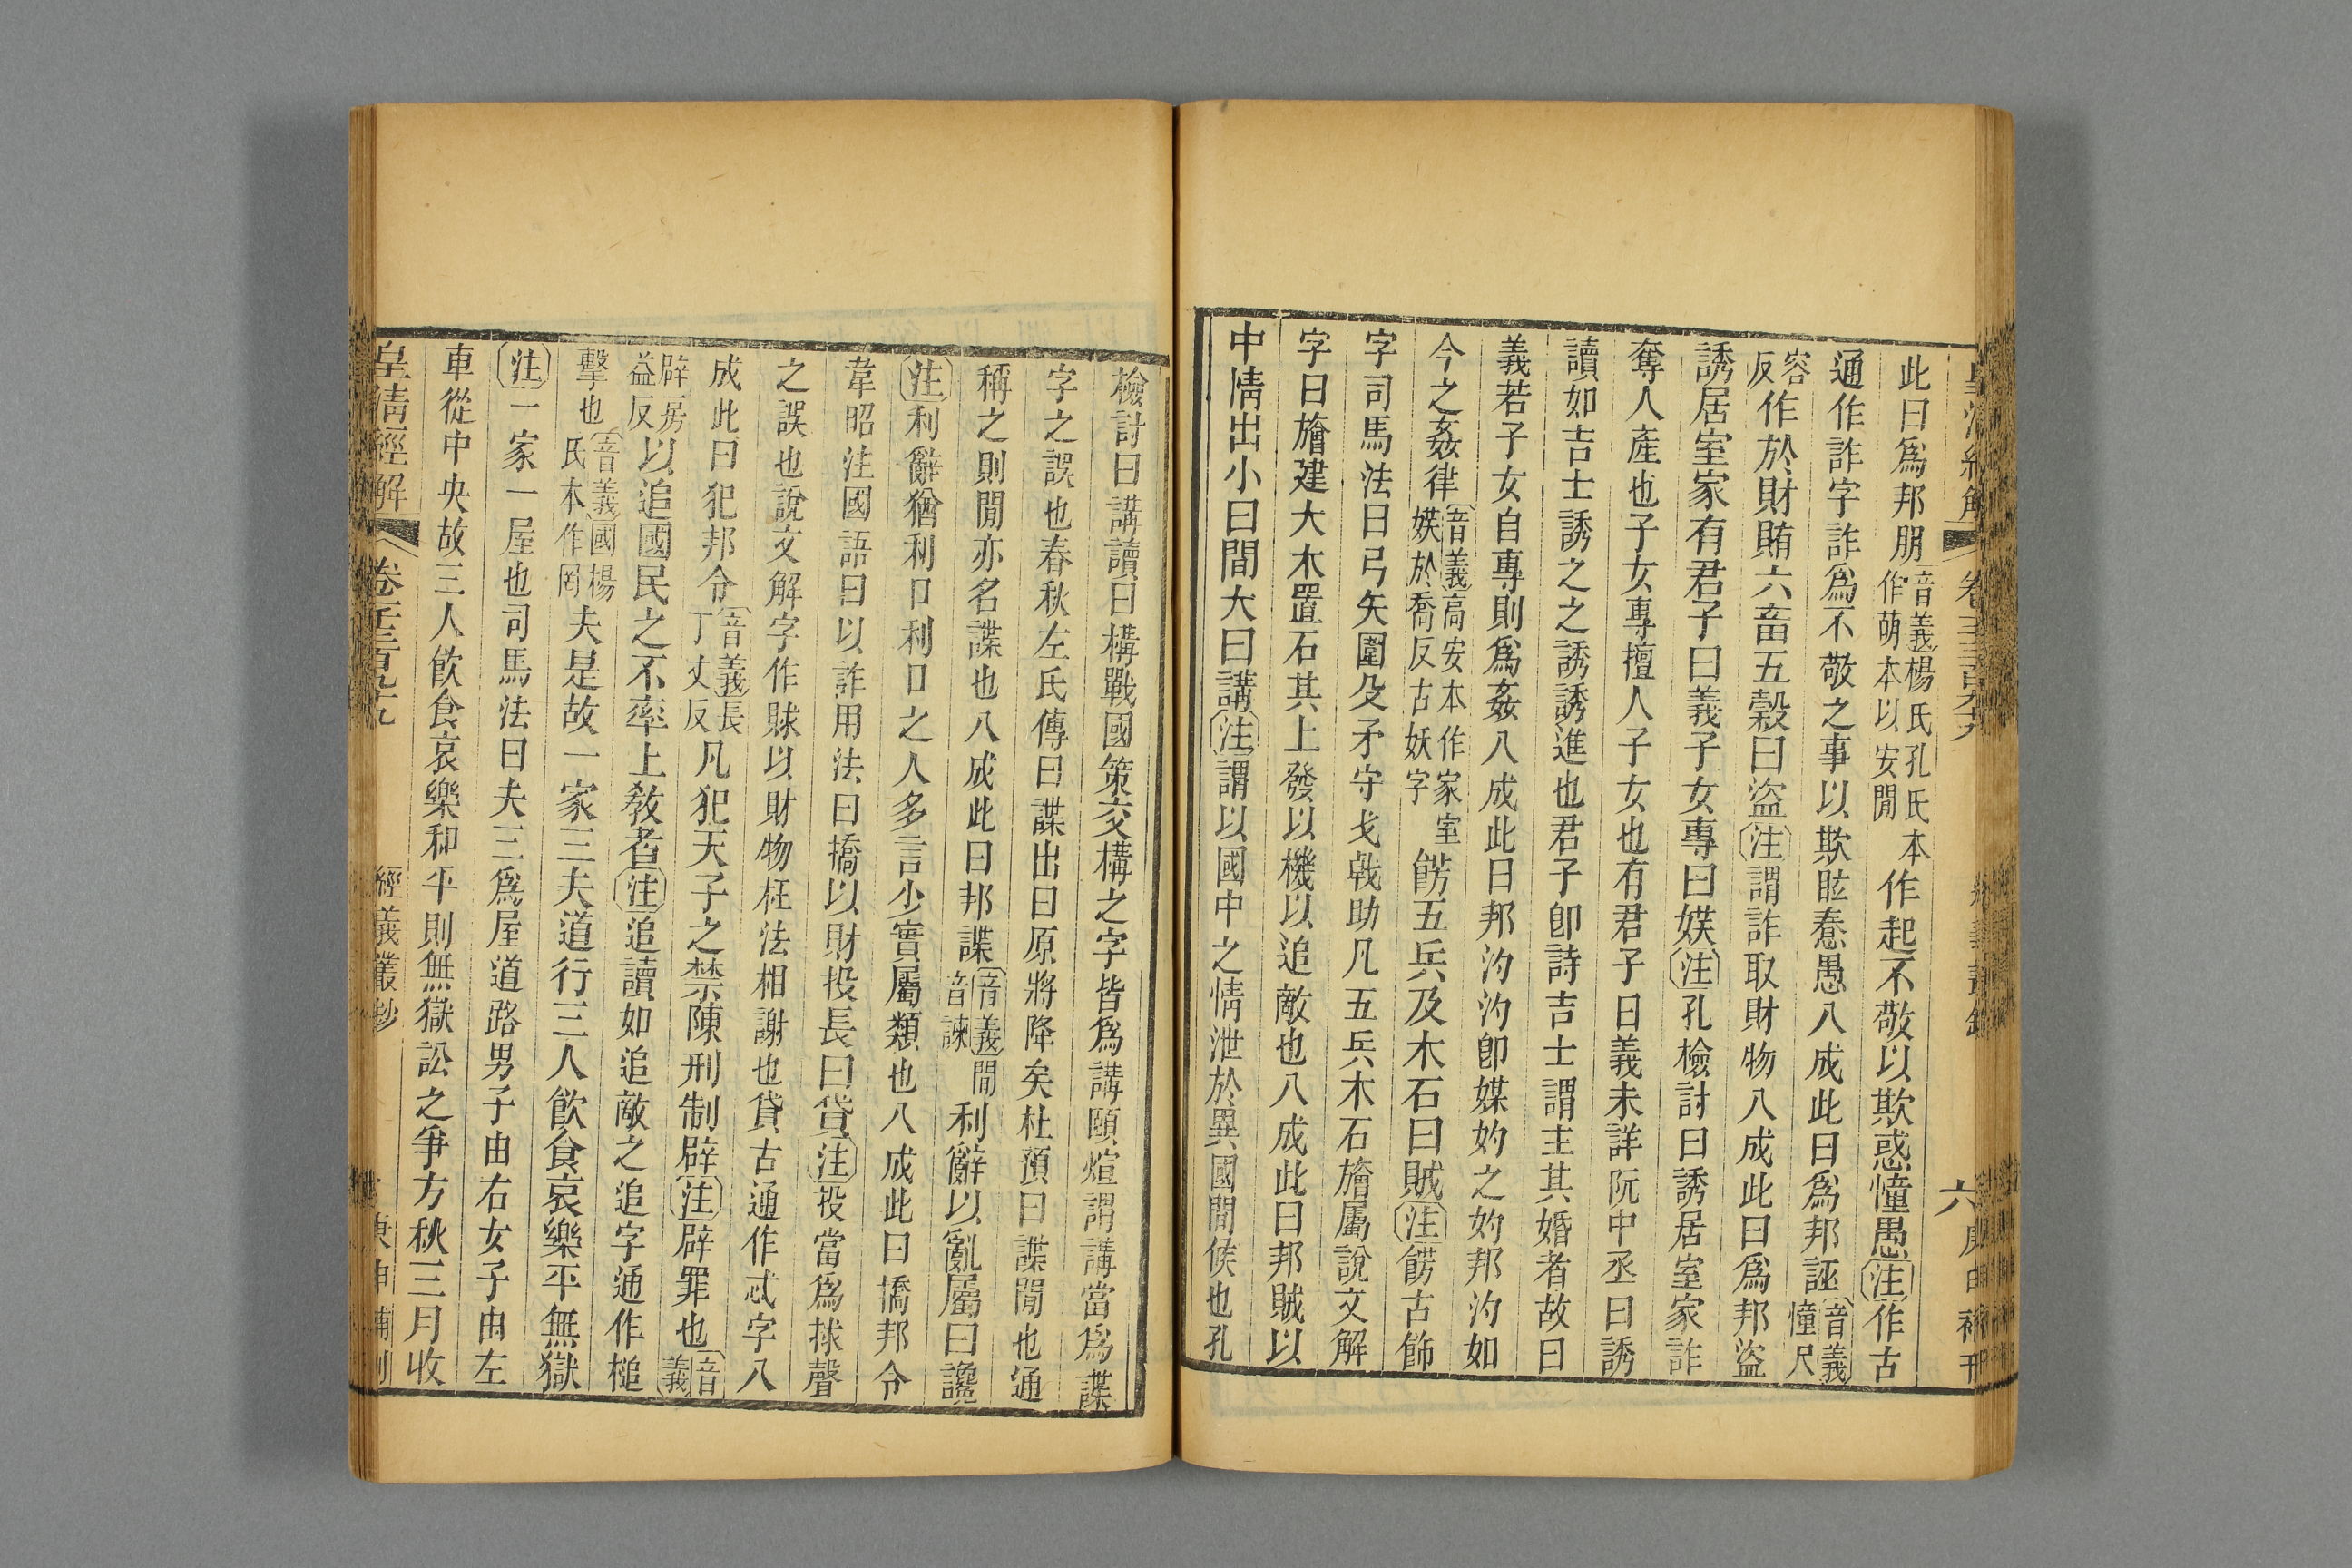 皇清經解
卷
六
庚申補刊
此曰爲邦朋音義楊氏孔氏本作萌本以安閒作起不敬以欺惑憧愚注作古
通作詐字詐爲不敬之事以欺眩惷愚八成此曰爲邦誣音義憧尺
容反作於財賄六畜五穀曰盜注謂詐取財物八成此曰爲邦盜
誘居室家有君子曰義子女專曰媄注孔檢討曰誘居室家詐
奪人產也子女專擅人子女也有君子曰義未詳阮中丞曰誘
讀如吉士誘之之誘誘進也君子卽詩吉士謂主其婚者故曰
義若子女自專則爲姦八成此曰邦汋汋卽媒妁之妁邦汋如
今之姦律音義高安本作家室媄於喬反古妖字餝五兵及木石曰賊注餝古飾
字司馬法曰弓矢圍殳矛守戈戟助凡五兵木石旝屬說文解
字曰旝建大木置石其上發以機以追敵也八成此曰邦賊以
中情出小曰間大曰講注謂以國中之情泄於異國閒候也孔
檢討曰講讀曰構戰國策交構之字皆爲講頤煊謂講當爲諜
字之誤也春秋左氏傳曰諜出曰原將降矣杜預曰諜閒也通
稱之則閒亦名諜也八成此曰邦諜音義閒音諫利辭以亂屬曰讒
注利辭猶利口利口之人多言少實屬類也八成此曰撟邦令
韋昭注國語曰以詐用法曰撟以財投長曰貸注投當爲捄聲
之誤也說文解字作賕以財物枉法相謝也貸古通作忒字八
成此曰犯邦令音義長丁丈反凡犯天子之禁陳刑制辟注辟罪也音義
辟房益反以追國民之不率上敎者注追讀如追敵之追字通作槌
擊也音義國楊氏本作罔夫是故一家三夫道行三人飮食哀樂平無獄
注一家一屋也司馬法曰夫三爲屋道路男子由右女子由左
車從中央故三人飮食哀樂和平則無獄訟之爭方秋三月收
皇清經解
經義叢鈔